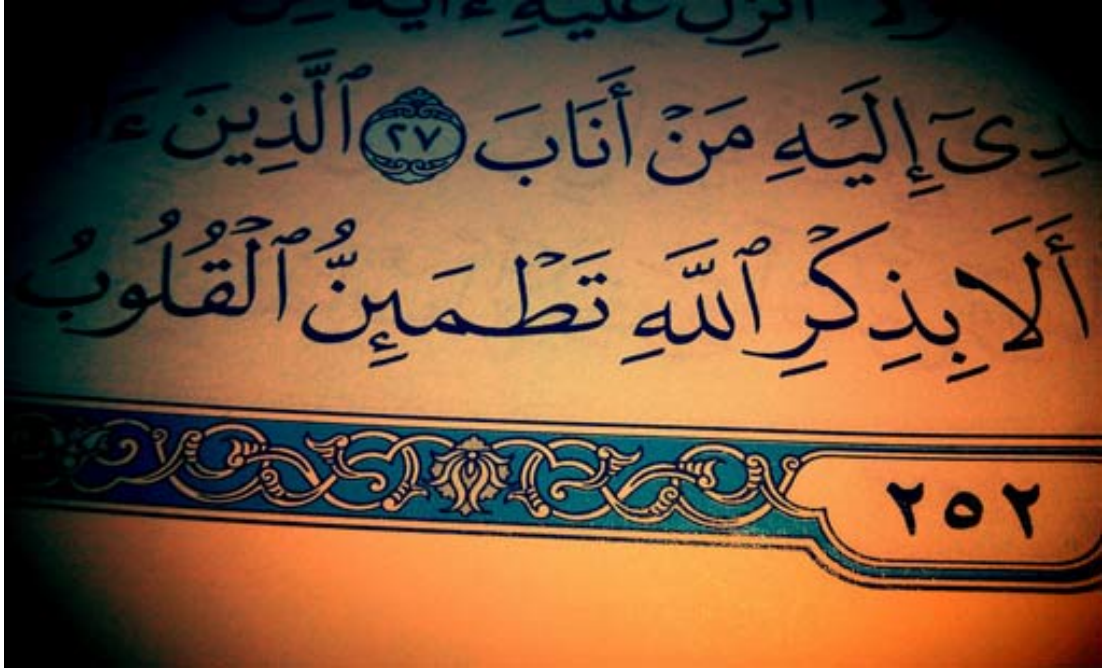 أُنزِلَ عَلَيْهِ ءَايَةٌ
إِلَيْهِ مَنْ أَنَابَ ٢٧ ٱلَّذِينَ
أَلَا بِذِكْرِ ٱللَّهِ تَطْمَئِنُّ ٱلْقُلُوبُ
٢٥٢